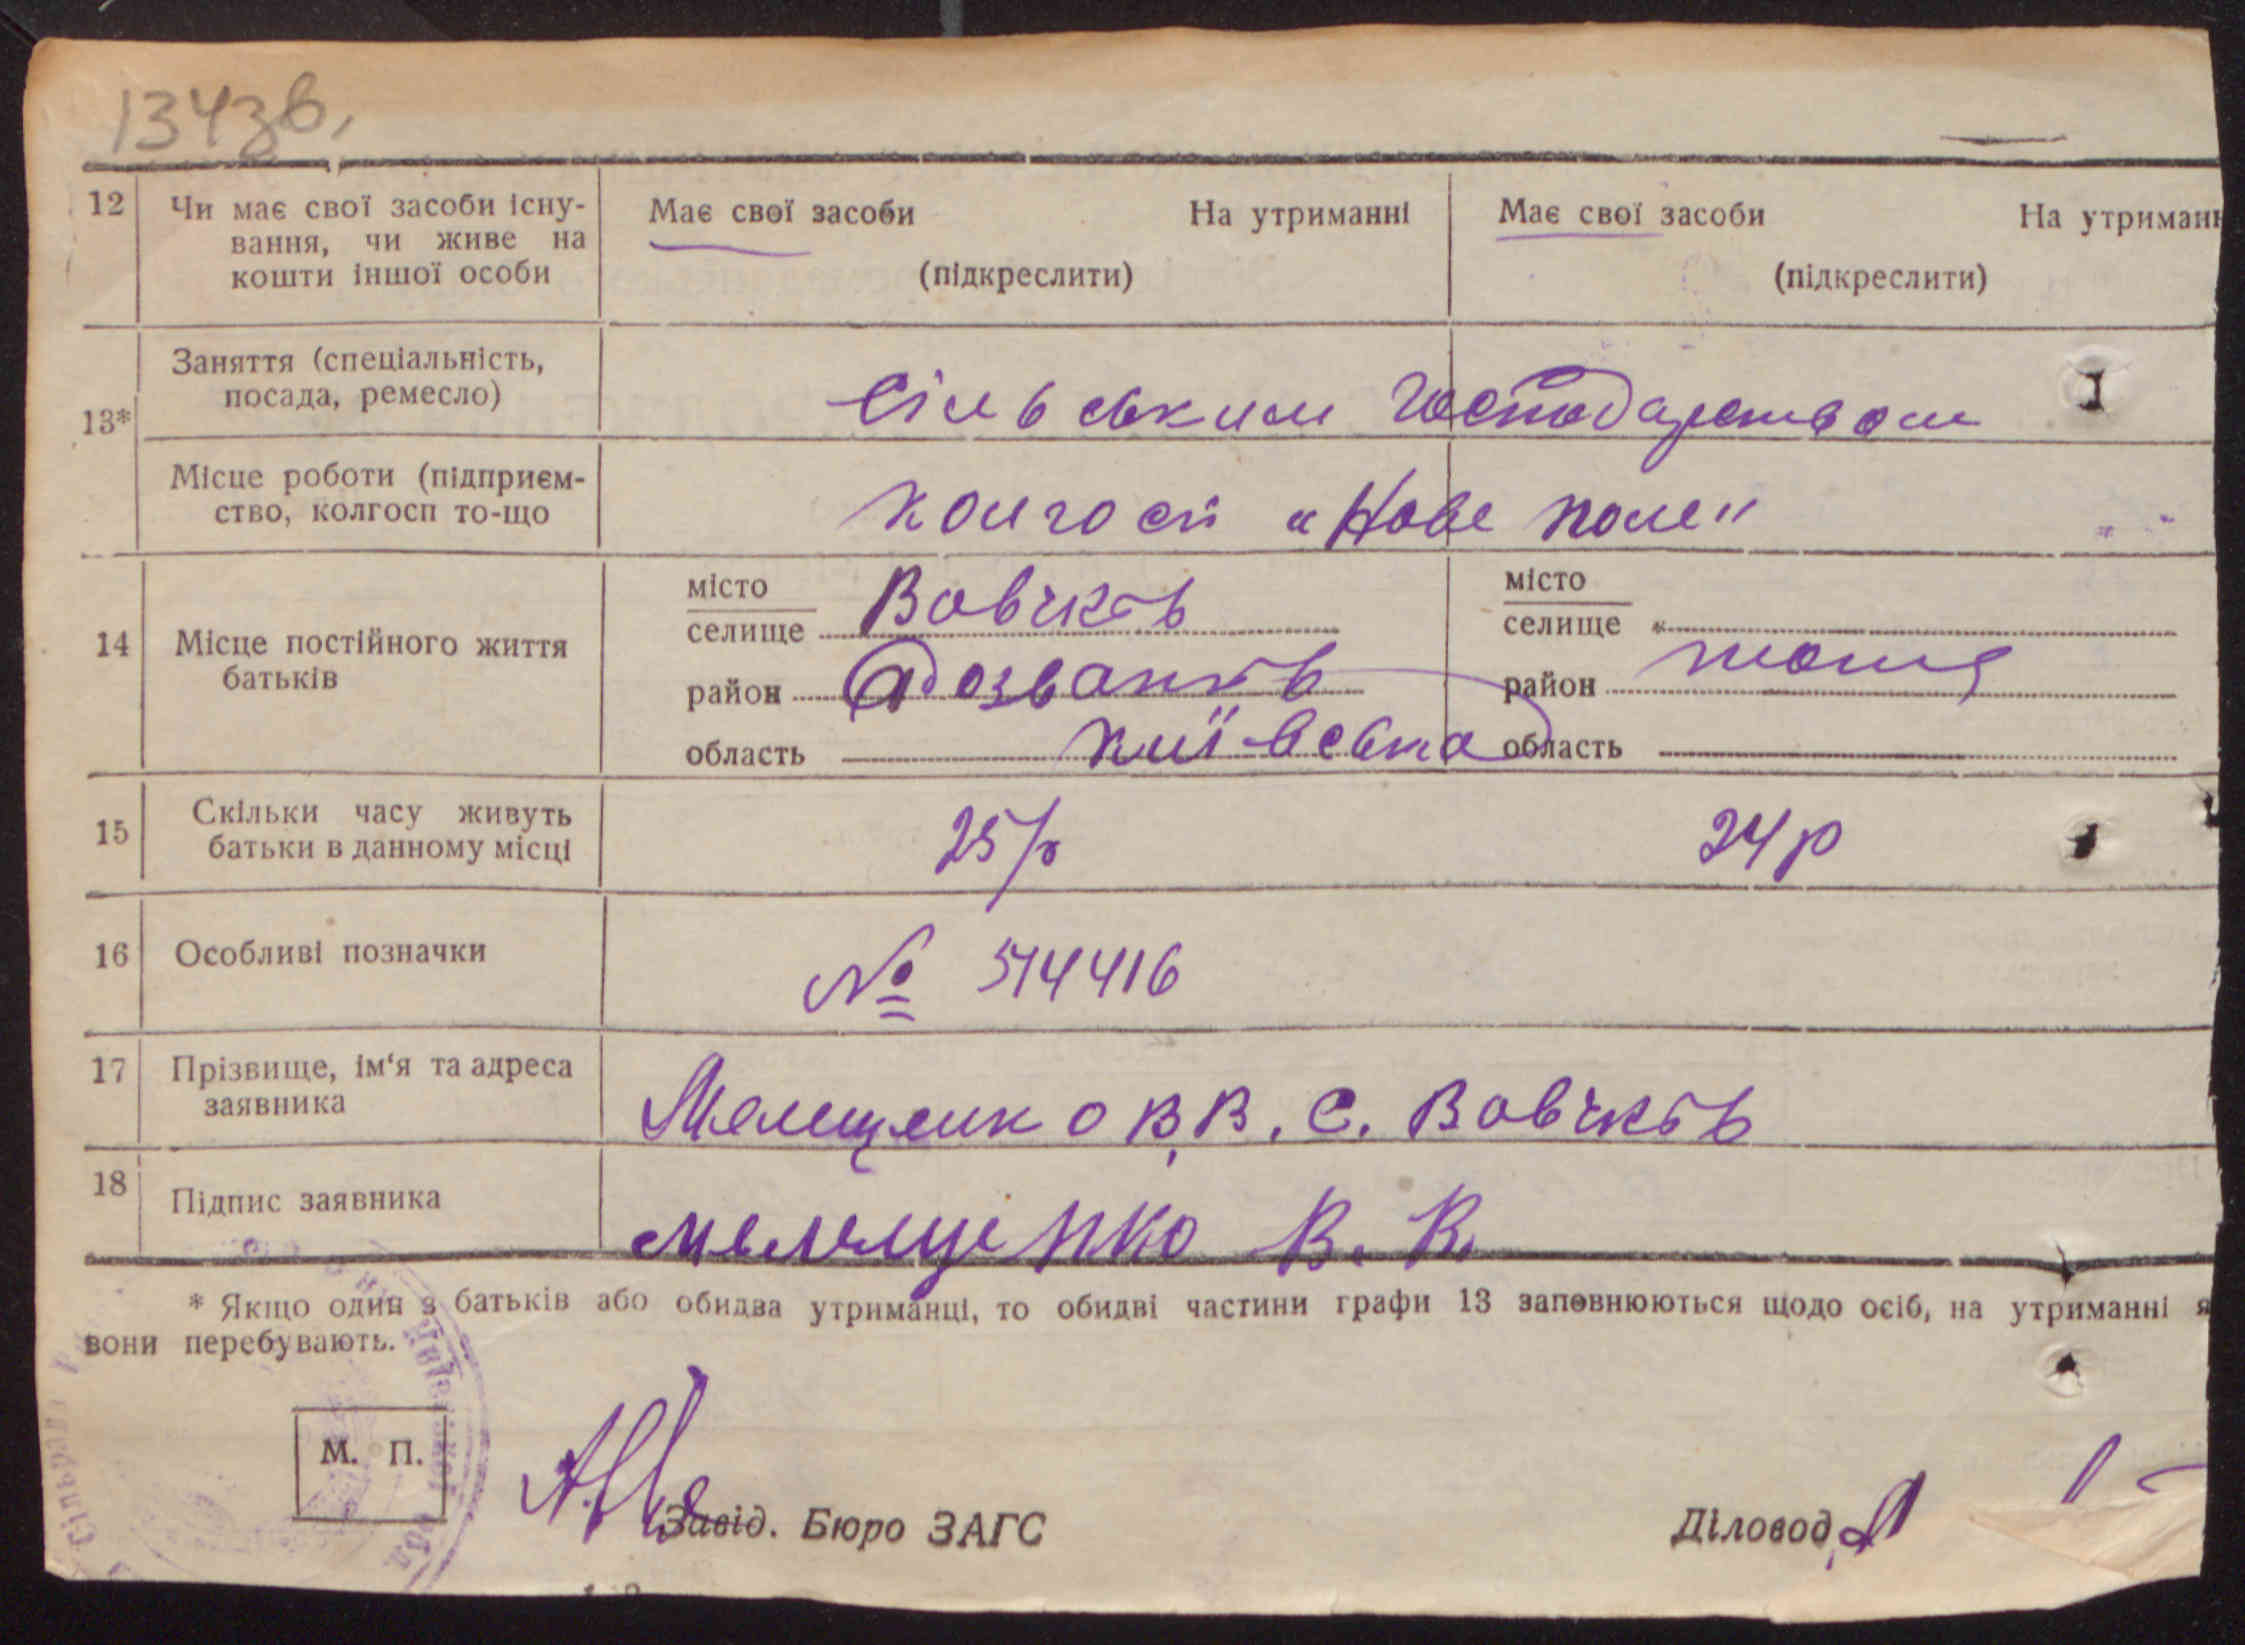 134зв,
12 Чи має свої засоби існу- Має свої засоби На утриманні Має свої засоби На утриман
вання, чи живе на
кошти іншої особи (підкреслити) (підкреслити)
Заняття (спеціальність,
посада, ремесло) Сільським господарством
13*
Місце роботи (підприєм-
ство, колгосп то-що колгосп «Нове поле"
місто Вовчків місто
селище селище
14 Місце постійного життя
батьків
район район тоже
область київська область
15 Скільки часу живуть 25р 24р
батьки в данному місці
16 Особливі позначки № 514416
17 Прізвище, ім'я та адреса
заявника Мелещенко В.В. С. Вовчків
18 Підпис заявника мелещенко В. В.
* Якщо один з батьків або обидва утриманці, то обидві частини графи 13 заповнюються щодо осіб, на утриманні я
вони перебувають.
М. П.
Завід. Бюро ЗАГС Діловод